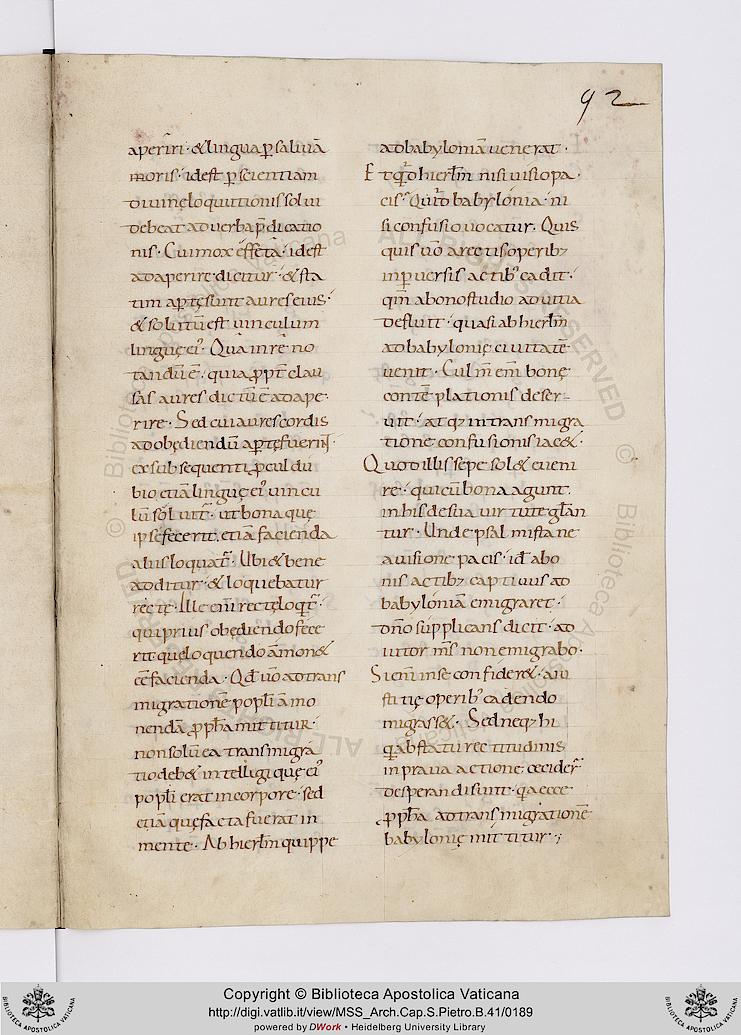 92
aperiri · & lingua ꝑ saliuā
moris · idest ꝑ scientiam
diuinę loquutionis solui
debeat ad uerba p̄dicatio
nis · Cui mox effeta · idest
adaperire dicitur · & sta
tim aꝑtę sunt aures eius ·
& solutū est uinculum
linguę ei᾽ · Qua in re no
tandū ē · quia ꝓpt̄ clau
sas aures dictū ē adape
rire · Sed cui aures cordis
ad obędiendū aꝑtę fuerint ·
ex subsequenti ꝓcul du
bio etiā linguę ei᾽ uincu
lū soluit᷑ · ut bona quę
ipse fecerit · etiā facienda
aliis loquat᷑ · Ubi & bene
additur · & loquebatur
rectę · Ille eni rectę loqt᷑ ·
qui prius obędiendo fece
rit quę loquendo āmon&
eē facienda · Qđ uō ad trans
migrationē popli āmo
nendā ꝓph̄a mittitur ·
non solū ea transmigra
tio deb& intelligi quę ei᾽
popli erat in corpore · sed
etiā quę facta fuerat in
mente · Ab hierlm̄ quippe
ad babyloniā uenerat ·
Et qd hierlm̄ nisi uisio pa
cis · Quid babylonia · ni
si confusio uocatur · Quis
quis uō a rectis operibꝫ
in ꝑuersis actib᾽ cadit ·
qm̄ a bono studio ad uitia
defluit · quasi ab hierlm̄
ad babylonię ciuitatē
uenit · Culm̄ em̄ bonę
contēplationis deser-
uit · atqꝫ in transmigra
tione confusionis iac& ·
Quod illis sępe sol& eueni
re · qui cū bona agunt
in his de sua uirtute glān
tur · Unde psalmista ne
a uisione pacis · id̄ a bo
nis actibꝫ captiuus ad
babyloniā emigraret ·
dn̄o supplicans dicit · ad
iutor ms̄ non emigrabo ·
Si eni in se confider& · a iu
stitię operib᾽ cadendo
migrass& · Sed neqꝫ hi
q ab statu rectitudinis
in praua actione ceciderͬ
desperandi sunt · qa ecce
ꝓph̄a ad transmigrationē
babylonię mittitur ·;
Copyright © Biblioteca Apostolica Vaticana
http://digi.vatlib.it/view/MSS_Arch.Cap.S.Pietro.B.41/0189
powered by DWork • Heidelberg University Library